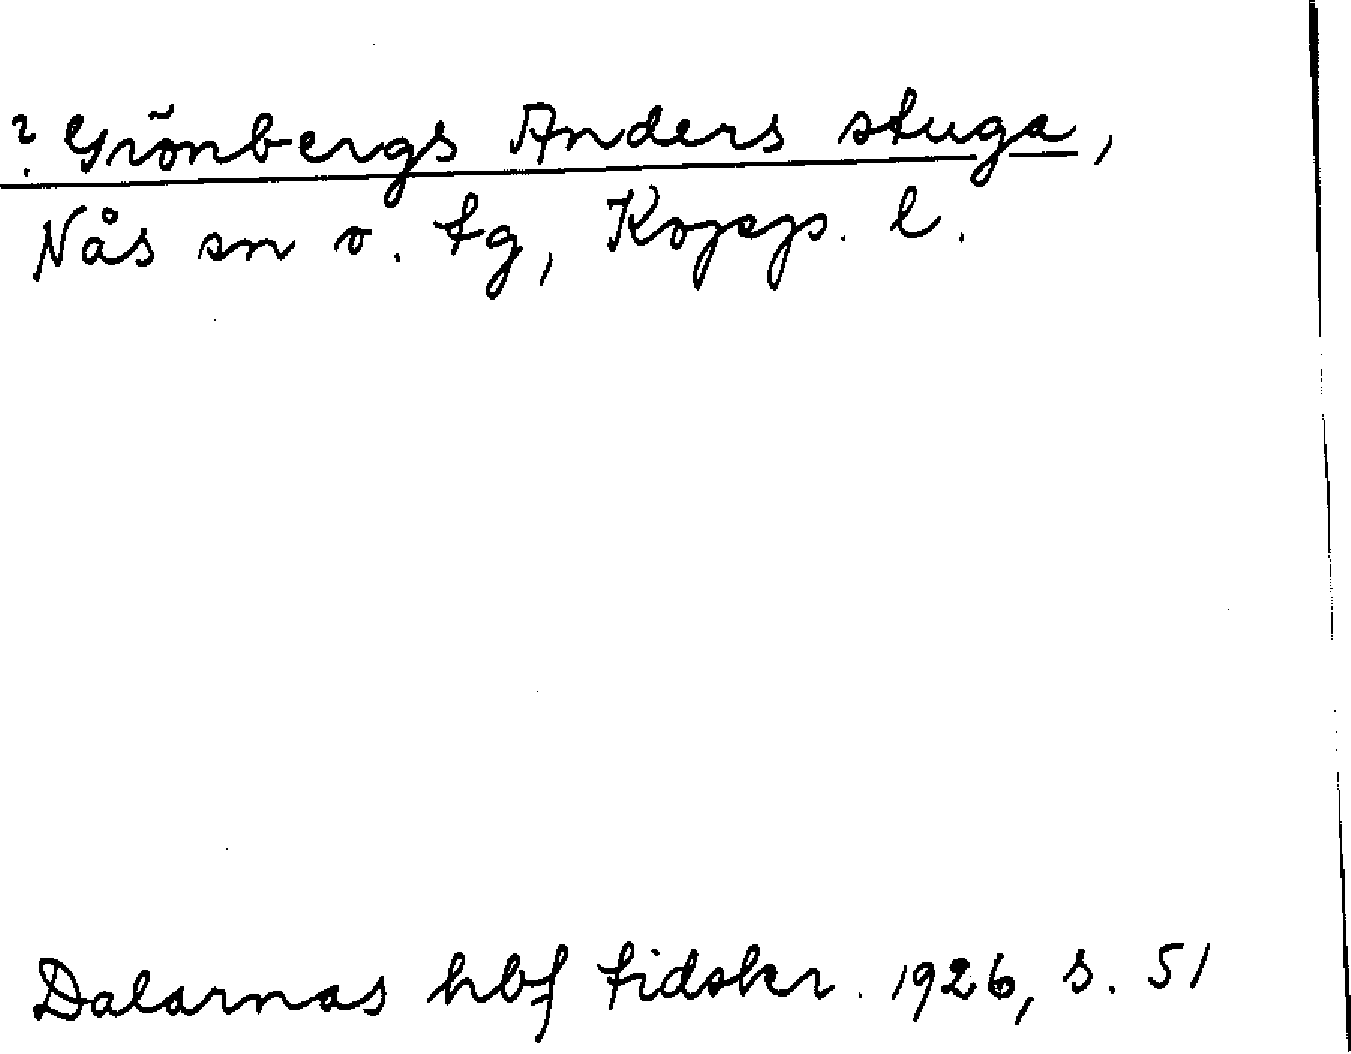 ? Grönbergs Anders stuga,
Nås sn o. tg, Kopp. l.
Dalarnas hbf tidskr. 1926, s. 51